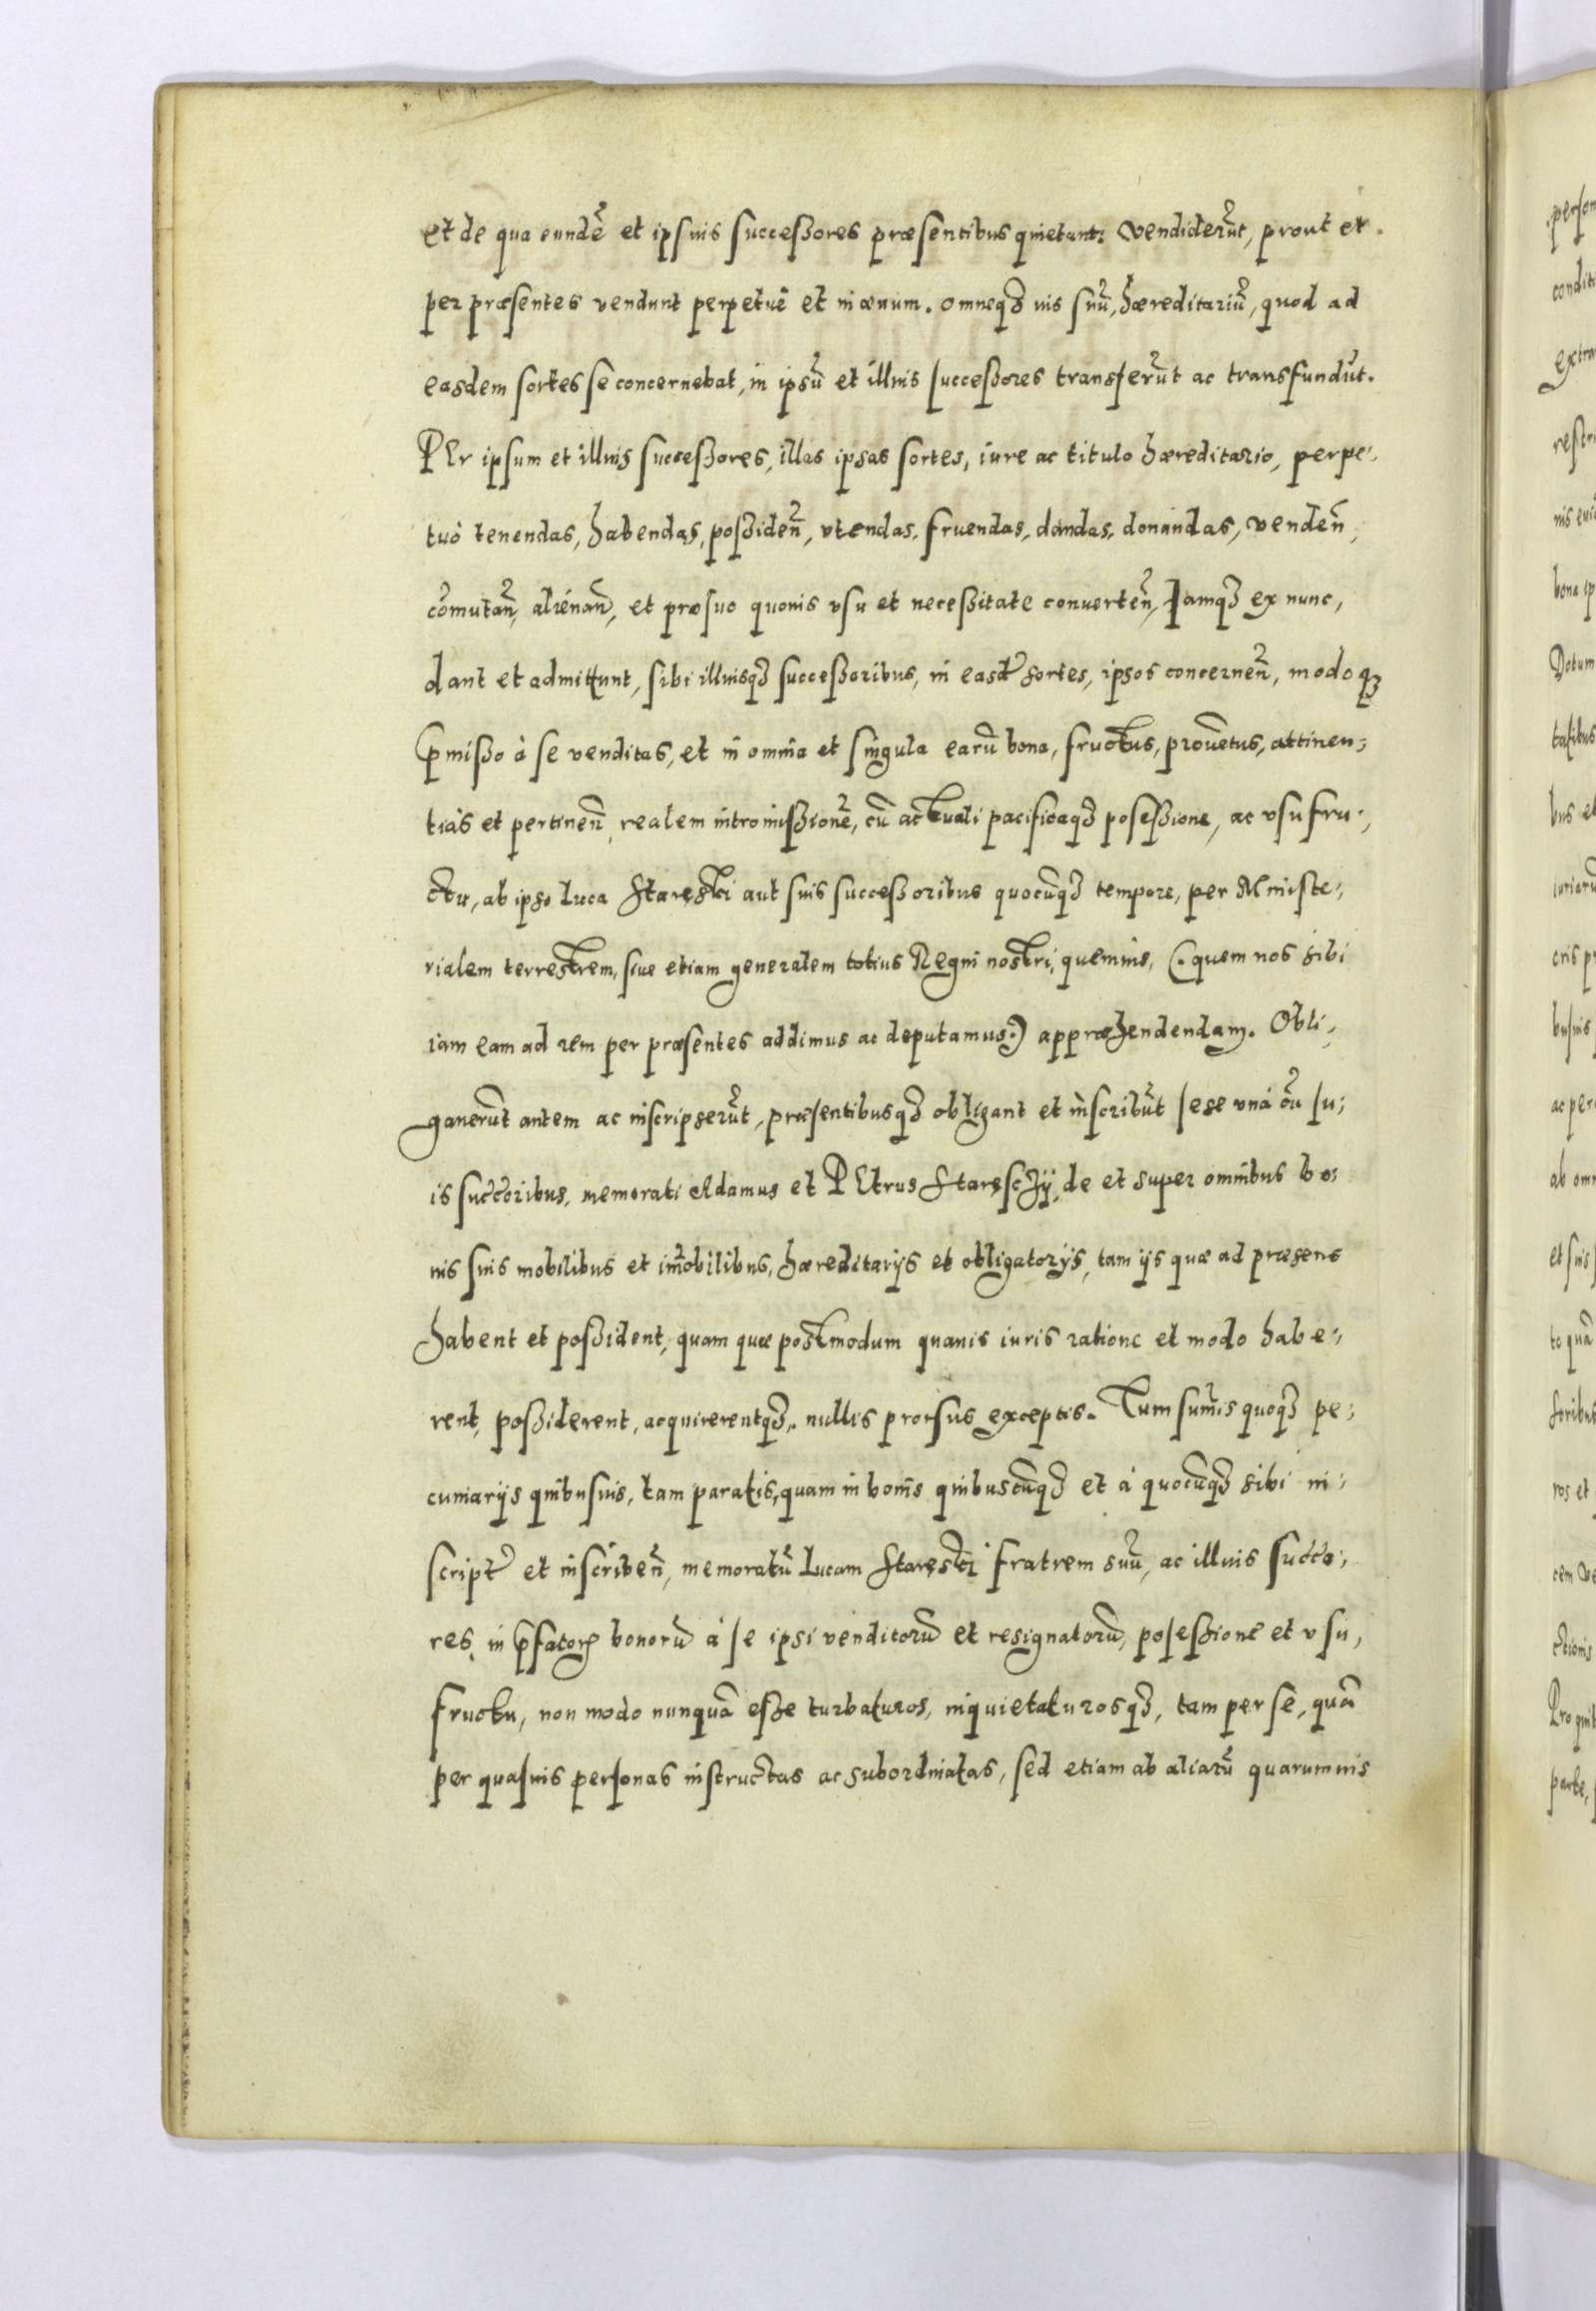 et de qua eundē et ipsius successores præsentibus quietant: vendiderūt, prout et
per præsentes vendunt perpetuè et in æuum. omneqꝫ ius suū, hæreditariū, quod ad
easdem sortes se concernebat, in ipsū et illius successores transferūt ac transfundūt.
PEr ipsum et illius successores, illas ipsas sortes, iure ac titulo hæreditario, perpe,
tuò tenendas, habendas, possideñ, vtendas, fruendas, dandas, donandas, vendeñ,
cōmutañ, alienañ, et pro suo quouis vsu et necessitate conuerteñ, Iamqꝫ ex nunc,
dant et admittunt, sibi illiusqꝫ successoribus, in easd sortes, ipsos concerneñ, modo qꝫ
p̄misso à se venditas, et in omnia et singula earū bona, fructus, prouētus, attinen;
tias et pertineñ, realem intromissionē, cū actuali pacificaqꝫ possessione, ac vsufru;
ctu, ab ipso Luca Staręski aut suis successoribus quocūqꝫ tempore, per Ministe;
rialem terrestrem, siue etiam generalem totius Regni nostri, quemuis, (. quem nos sibi
iam eam ad rem per præsentes addimus ac deputamus:) appræhendendam. Obli,
gauerūt autem ac inscripserūt, præsentibusqꝫ obligant et inscribūt sese vná cū su;
is succ̄oribus, memorati Adamus et PEtrus Staręscÿ, de et super omnibus bo;
nis suis mobilibus et im̄obilibus, hæreditarijs et obligatorijs, tam ijs quæ ad præsens
habent et possident, quam quæ postmodum quauis iuris ratione et modo habe;
rent, possiderent, acquirerentqꝫ, nullis prorsus exceptis. Tum sum̄is quoqꝫ pe;
cuniarijs quibusuis, tam paratis, quam in bonis quibuscūqꝫ et á quocūqꝫ sibi in;
script et inscribeñ, memoratū Lucam Staręski fratrem suū, ac illius succ̄o;
res, in p̄fatorꝝ bonorū á se ipsi venditorū et resignatorū, possessione et vsu,
fructu, non modo nunquā esse turbaturos, inquietaturosqꝫ, tam per se, quā
per quasuis personas instructas ac subordinatas, sed etiam ab aliarū quarumuis